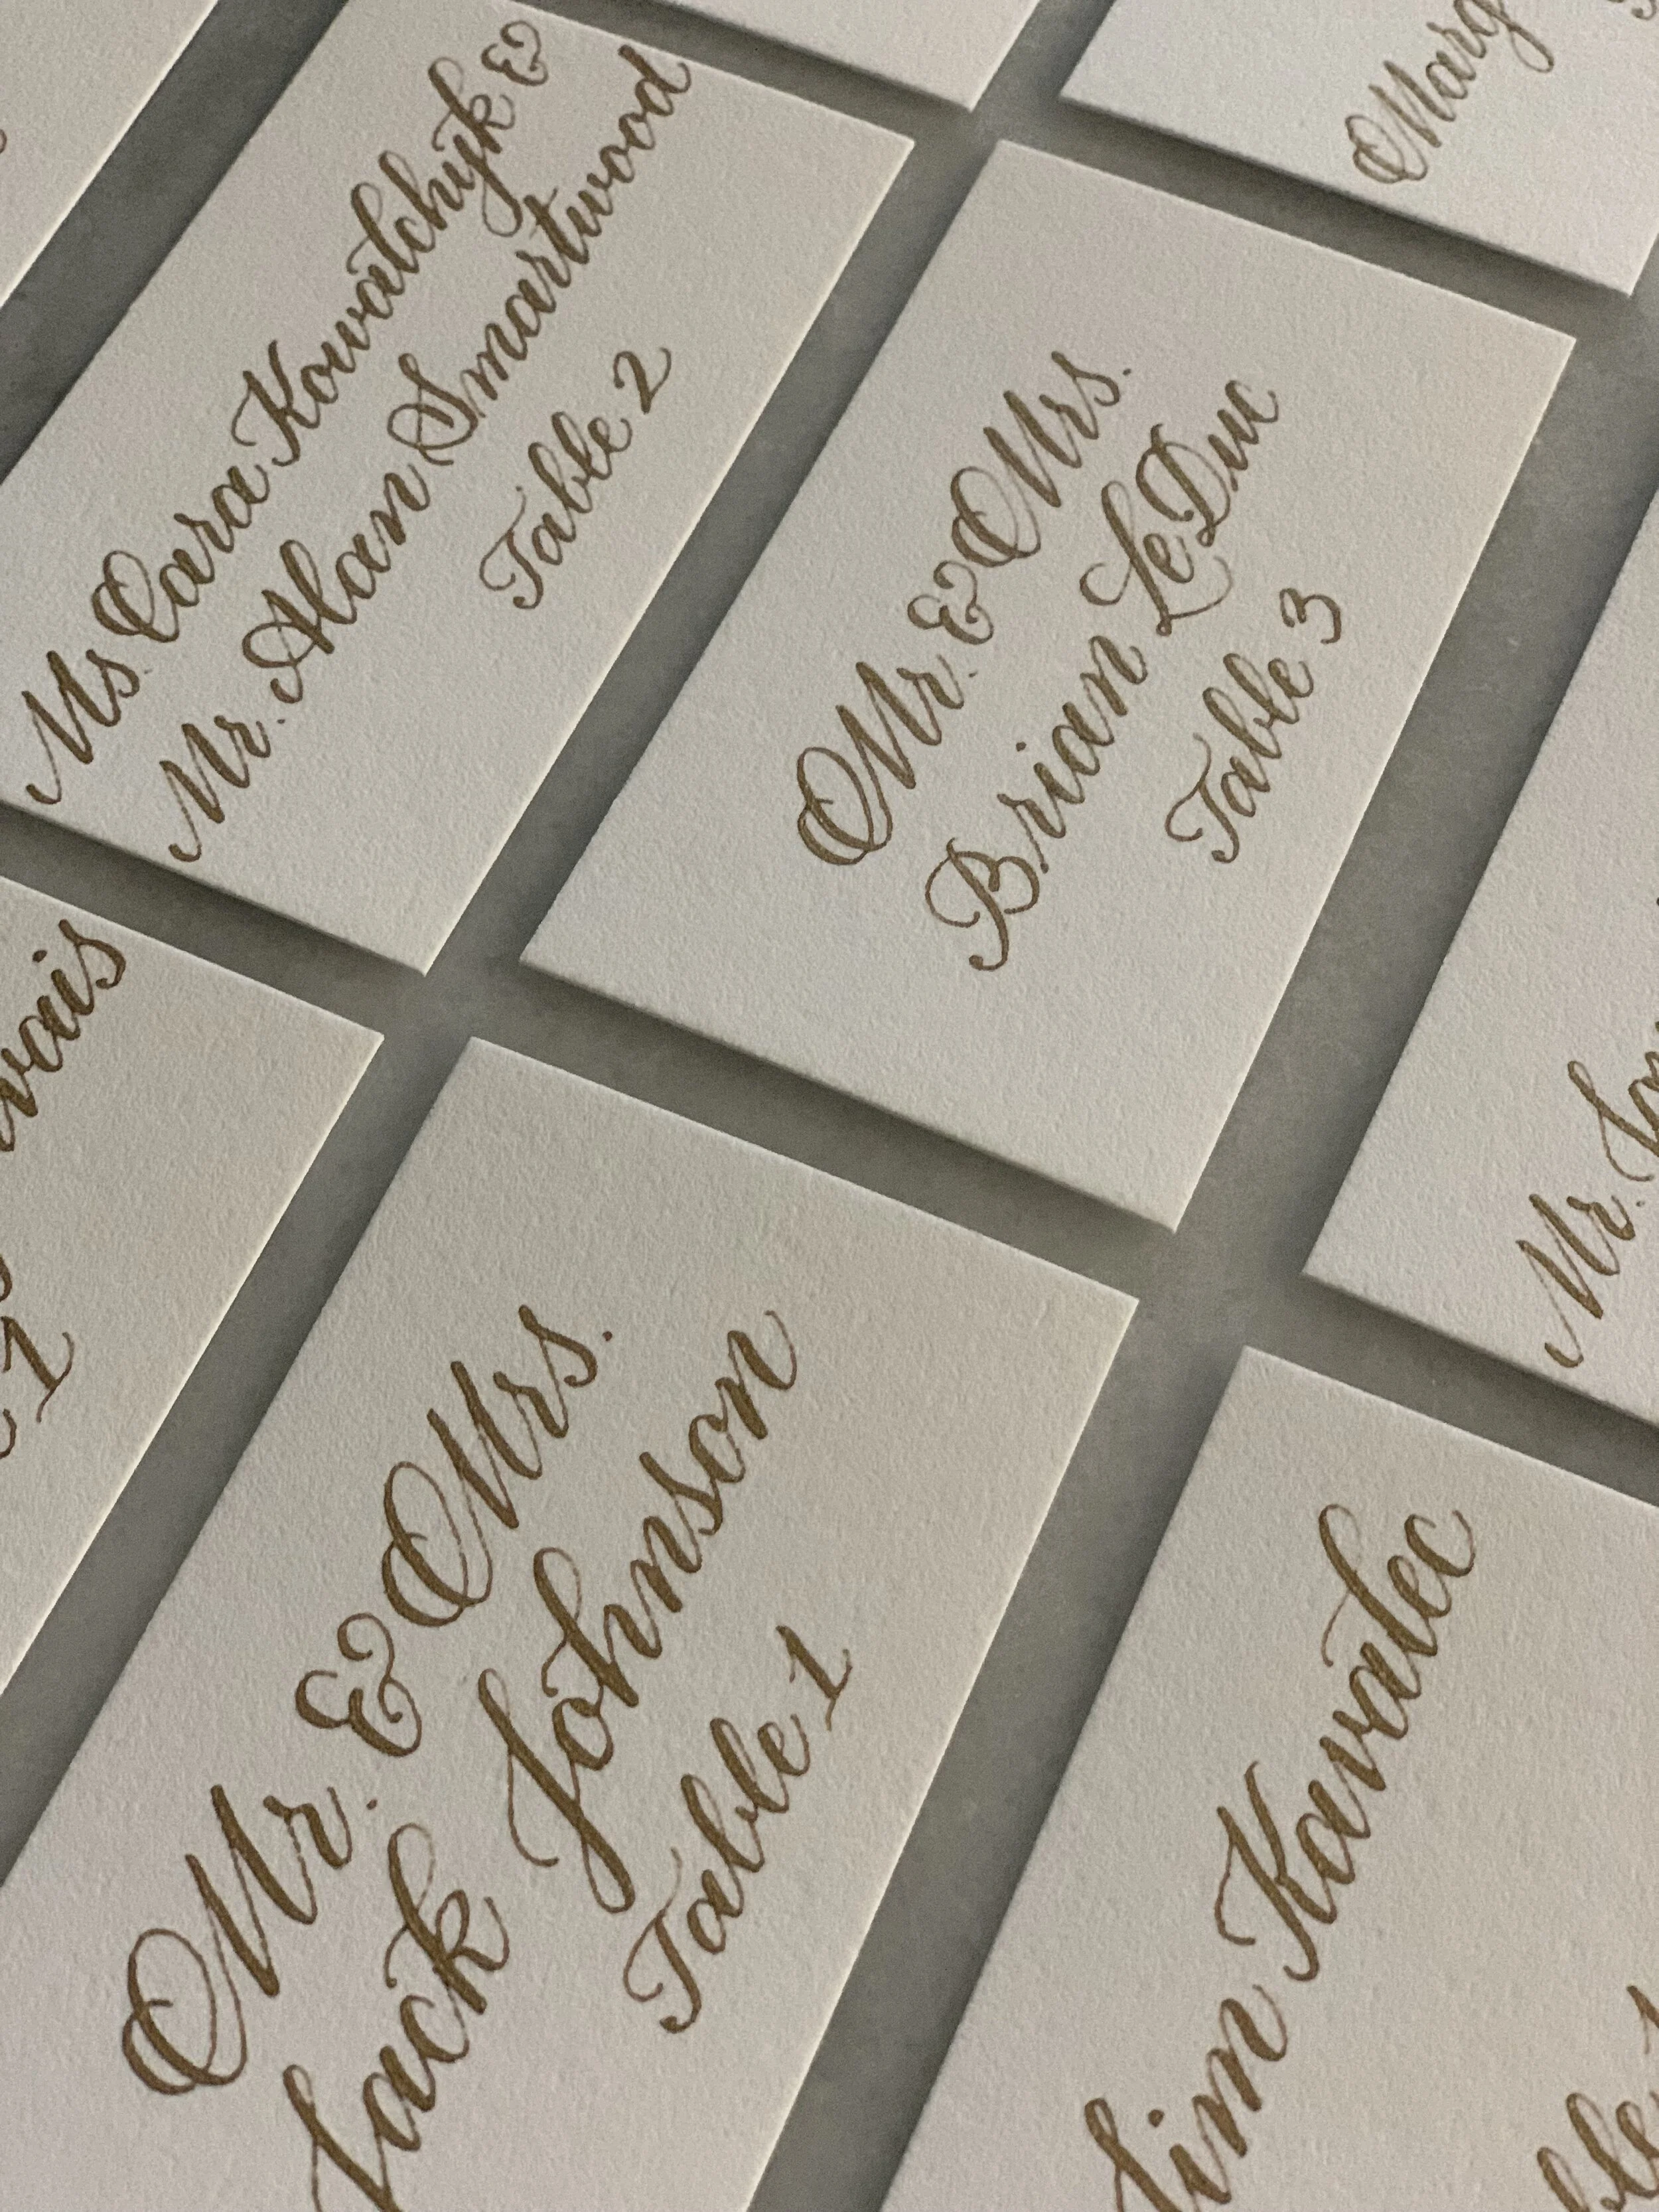 Ms. Cara Kowalchyk &
Mr. Alan Smartwood
Table 2
Mr. & Mrs.
Brian LeDuc
Table 3
Mr. & Mrs.
Jack Johnson
Table 1
Jim Kavalec
Mr.
1